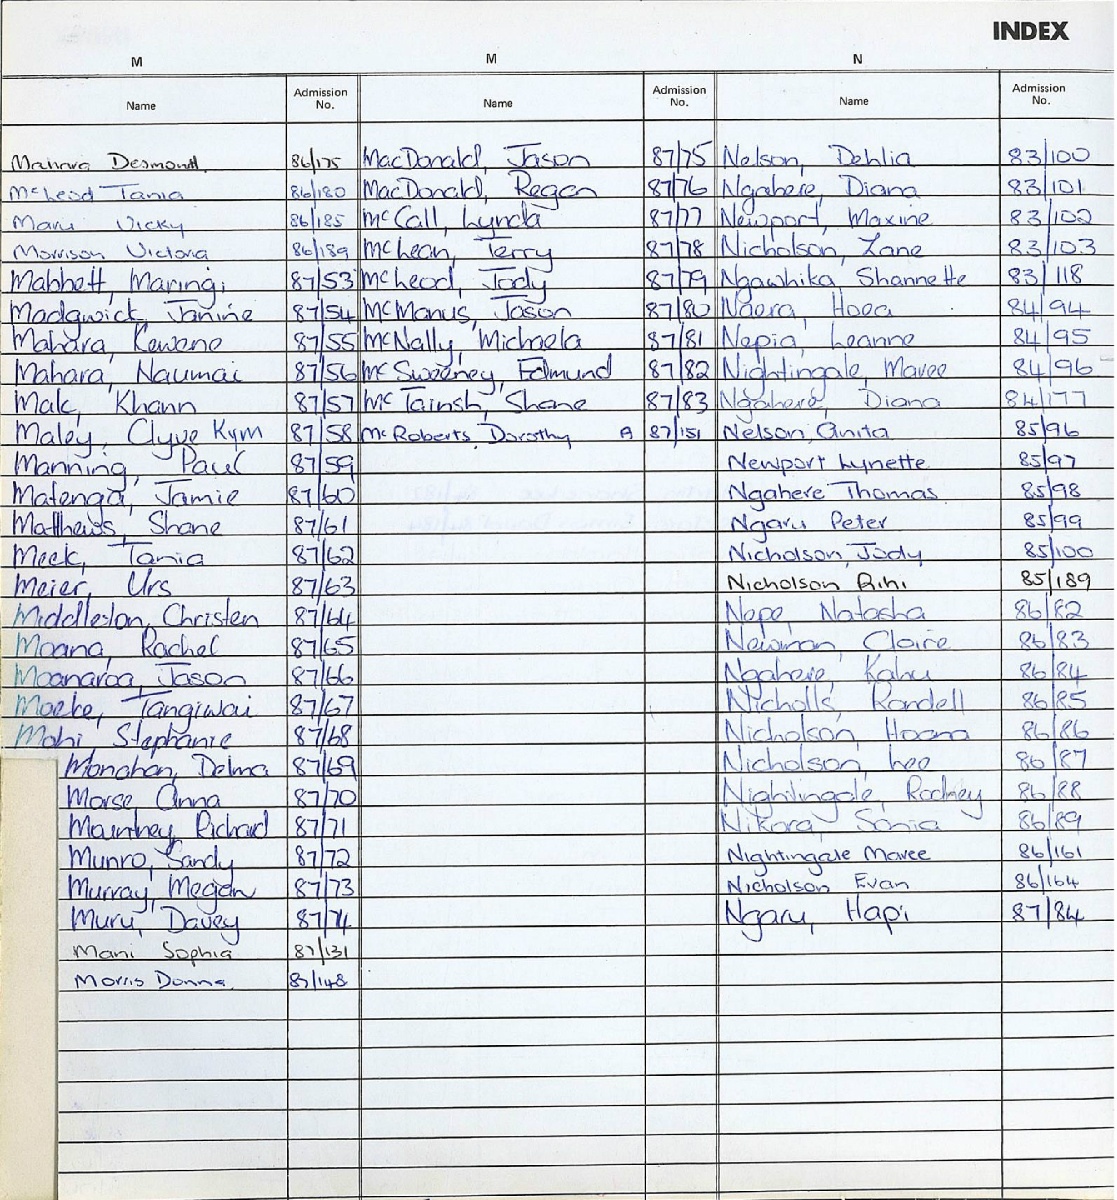 INDEX
M
Name Admission No.
Mahara Desmond 86/175
McLead Tania 86/180
Maru Vicky 86/185
Morrison Victoria 86/189
Mabbett, Maringi 87/53
Madgwick, Janine 87/54
Mahara, Rewene 87/55
Mahara, Naumai 87/56
Mak, Khann 87/57
Maley, Clyve Kym 87/58
Manning, Paul 87/59
Matenga, Jamie 87/60
Matthews, Shane 87/61
Meek, Tania 87/62
Meier, Urs 87/63
Middleton, Christen 87/64
Moana, Rachel 87/65
Moanaroa, Jason 87/66
Moeke, Tangiwai 87/67
Mohi, Stephanie 87/68
Monahan, Delma 87/69
Morse, Anna 87/70
Mounthey, Richard 87/71
Munro, Sandy 87/72
Murray, Megan 87/73
Muru, Davey 87/74
Mani Sophia 87/131
Morris Donna 87/148
M
Name Admission No.
MacDonald, Jason 87/75
MacDonald, Regan 87/76
McCall, Lynda 87/77
McLean, Terry 87/78
McLeod, Jody 87/79
McManus, Jason 87/80
McNally, Michaela 87/81
McSweeney, Edmund 87/82
McTainsh, Shane 87/83
McRoberts, Dorothy A 87/151
N
Name Admission No.
Nelson, Dehlia 83/100
Ngahere, Diana 83/101
Newport, Maxine 83/102
Nicholson, Zane 83/103
Ngawhika, Shannette 83/118
Naera, Hoea 84/94
Nepia, Leanne 84/95
Nightingale, Maree 84/96
Ngahere, Diana 84/177
Nelson, Anita 85/96
Newport Lynette 85/97
Ngahere Thomas 85/98
Ngaru Peter 85/99
Nicholson, Jody 85/100
Nicholson Rihi 85/189
Nope, Natasha 86/82
Newman, Claire 86/83
Ngahere, Kahu 86/84
Nicholls, Randell 86/85
Nicholson, Hoana 86/86
Nicholson, Leo 86/87
Nightingale, Rodney 86/88
Nikora, Sonia 86/89
Nightingale Maree 86/161
Nicholson Evan 86/164
Ngaru, Hapi 87/84